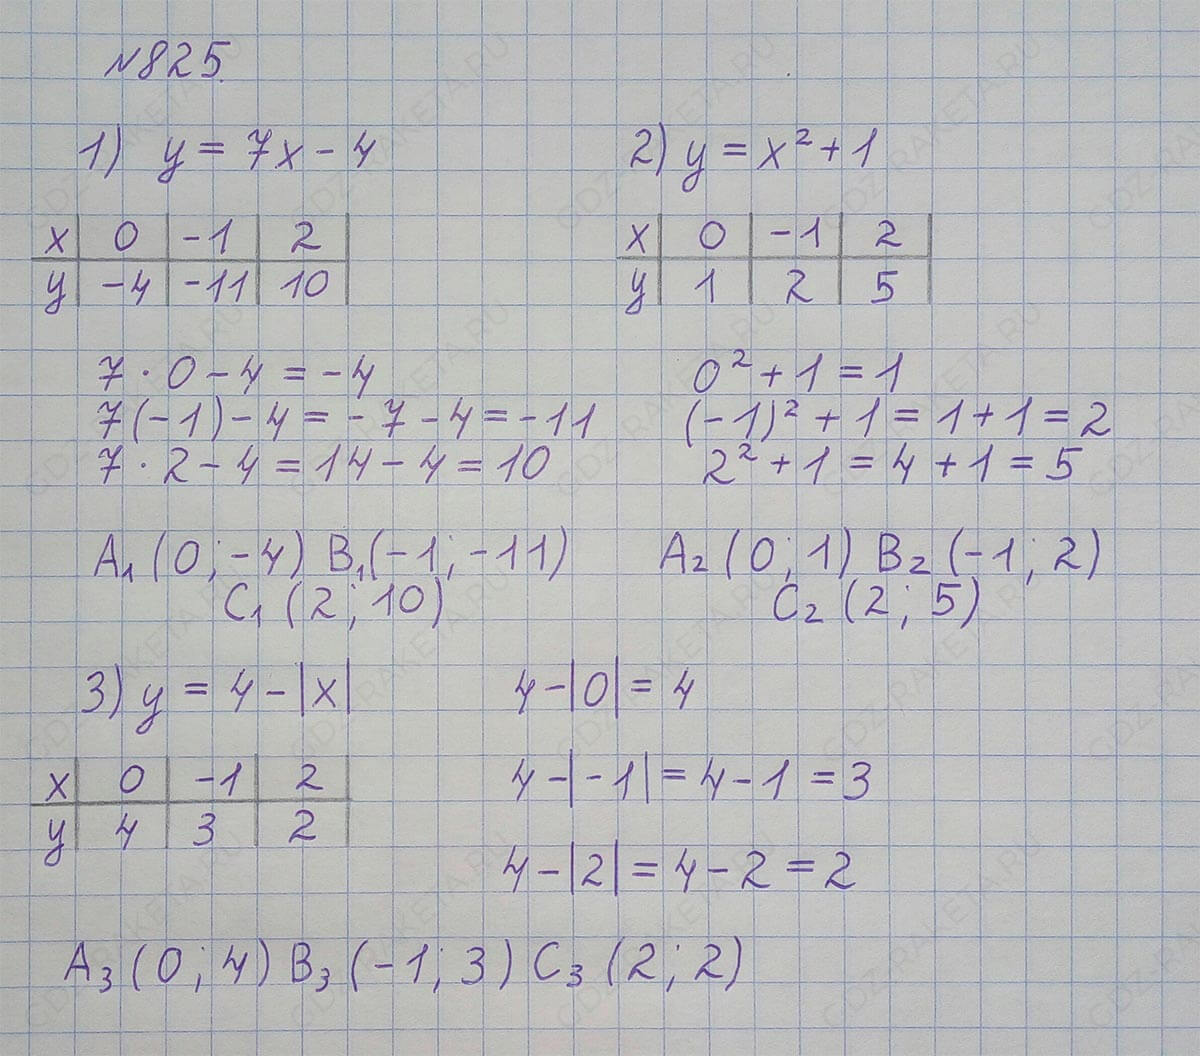 №825.
1) y = 7x - 4
x 0 -1 2
y -4 -11 10
7 · 0 - 4 = -4
7(-1) - 4 = -7 - 4 = -11
7 · 2 - 4 = 14 - 4 = 10
A₁ (0; -4) B₁ (-1; -11)
C₁ (2; 10)
2) y = x² + 1
x 0 -1 2
y 1 2 5
0² + 1 = 1
(-1)² + 1 = 1 + 1 = 2
2² + 1 = 4 + 1 = 5
A₂ (0; 1) B₂ (-1; 2)
C₂ (2; 5)
3) y = 4 - |x|
x 0 -1 2
y 4 3 2
4 - |0| = 4
4 - |-1| = 4 - 1 = 3
4 - |2| = 4 - 2 = 2
A₃ (0; 4) B₃ (-1; 3) C₃ (2; 2)
GDZ-RAKETA.RU